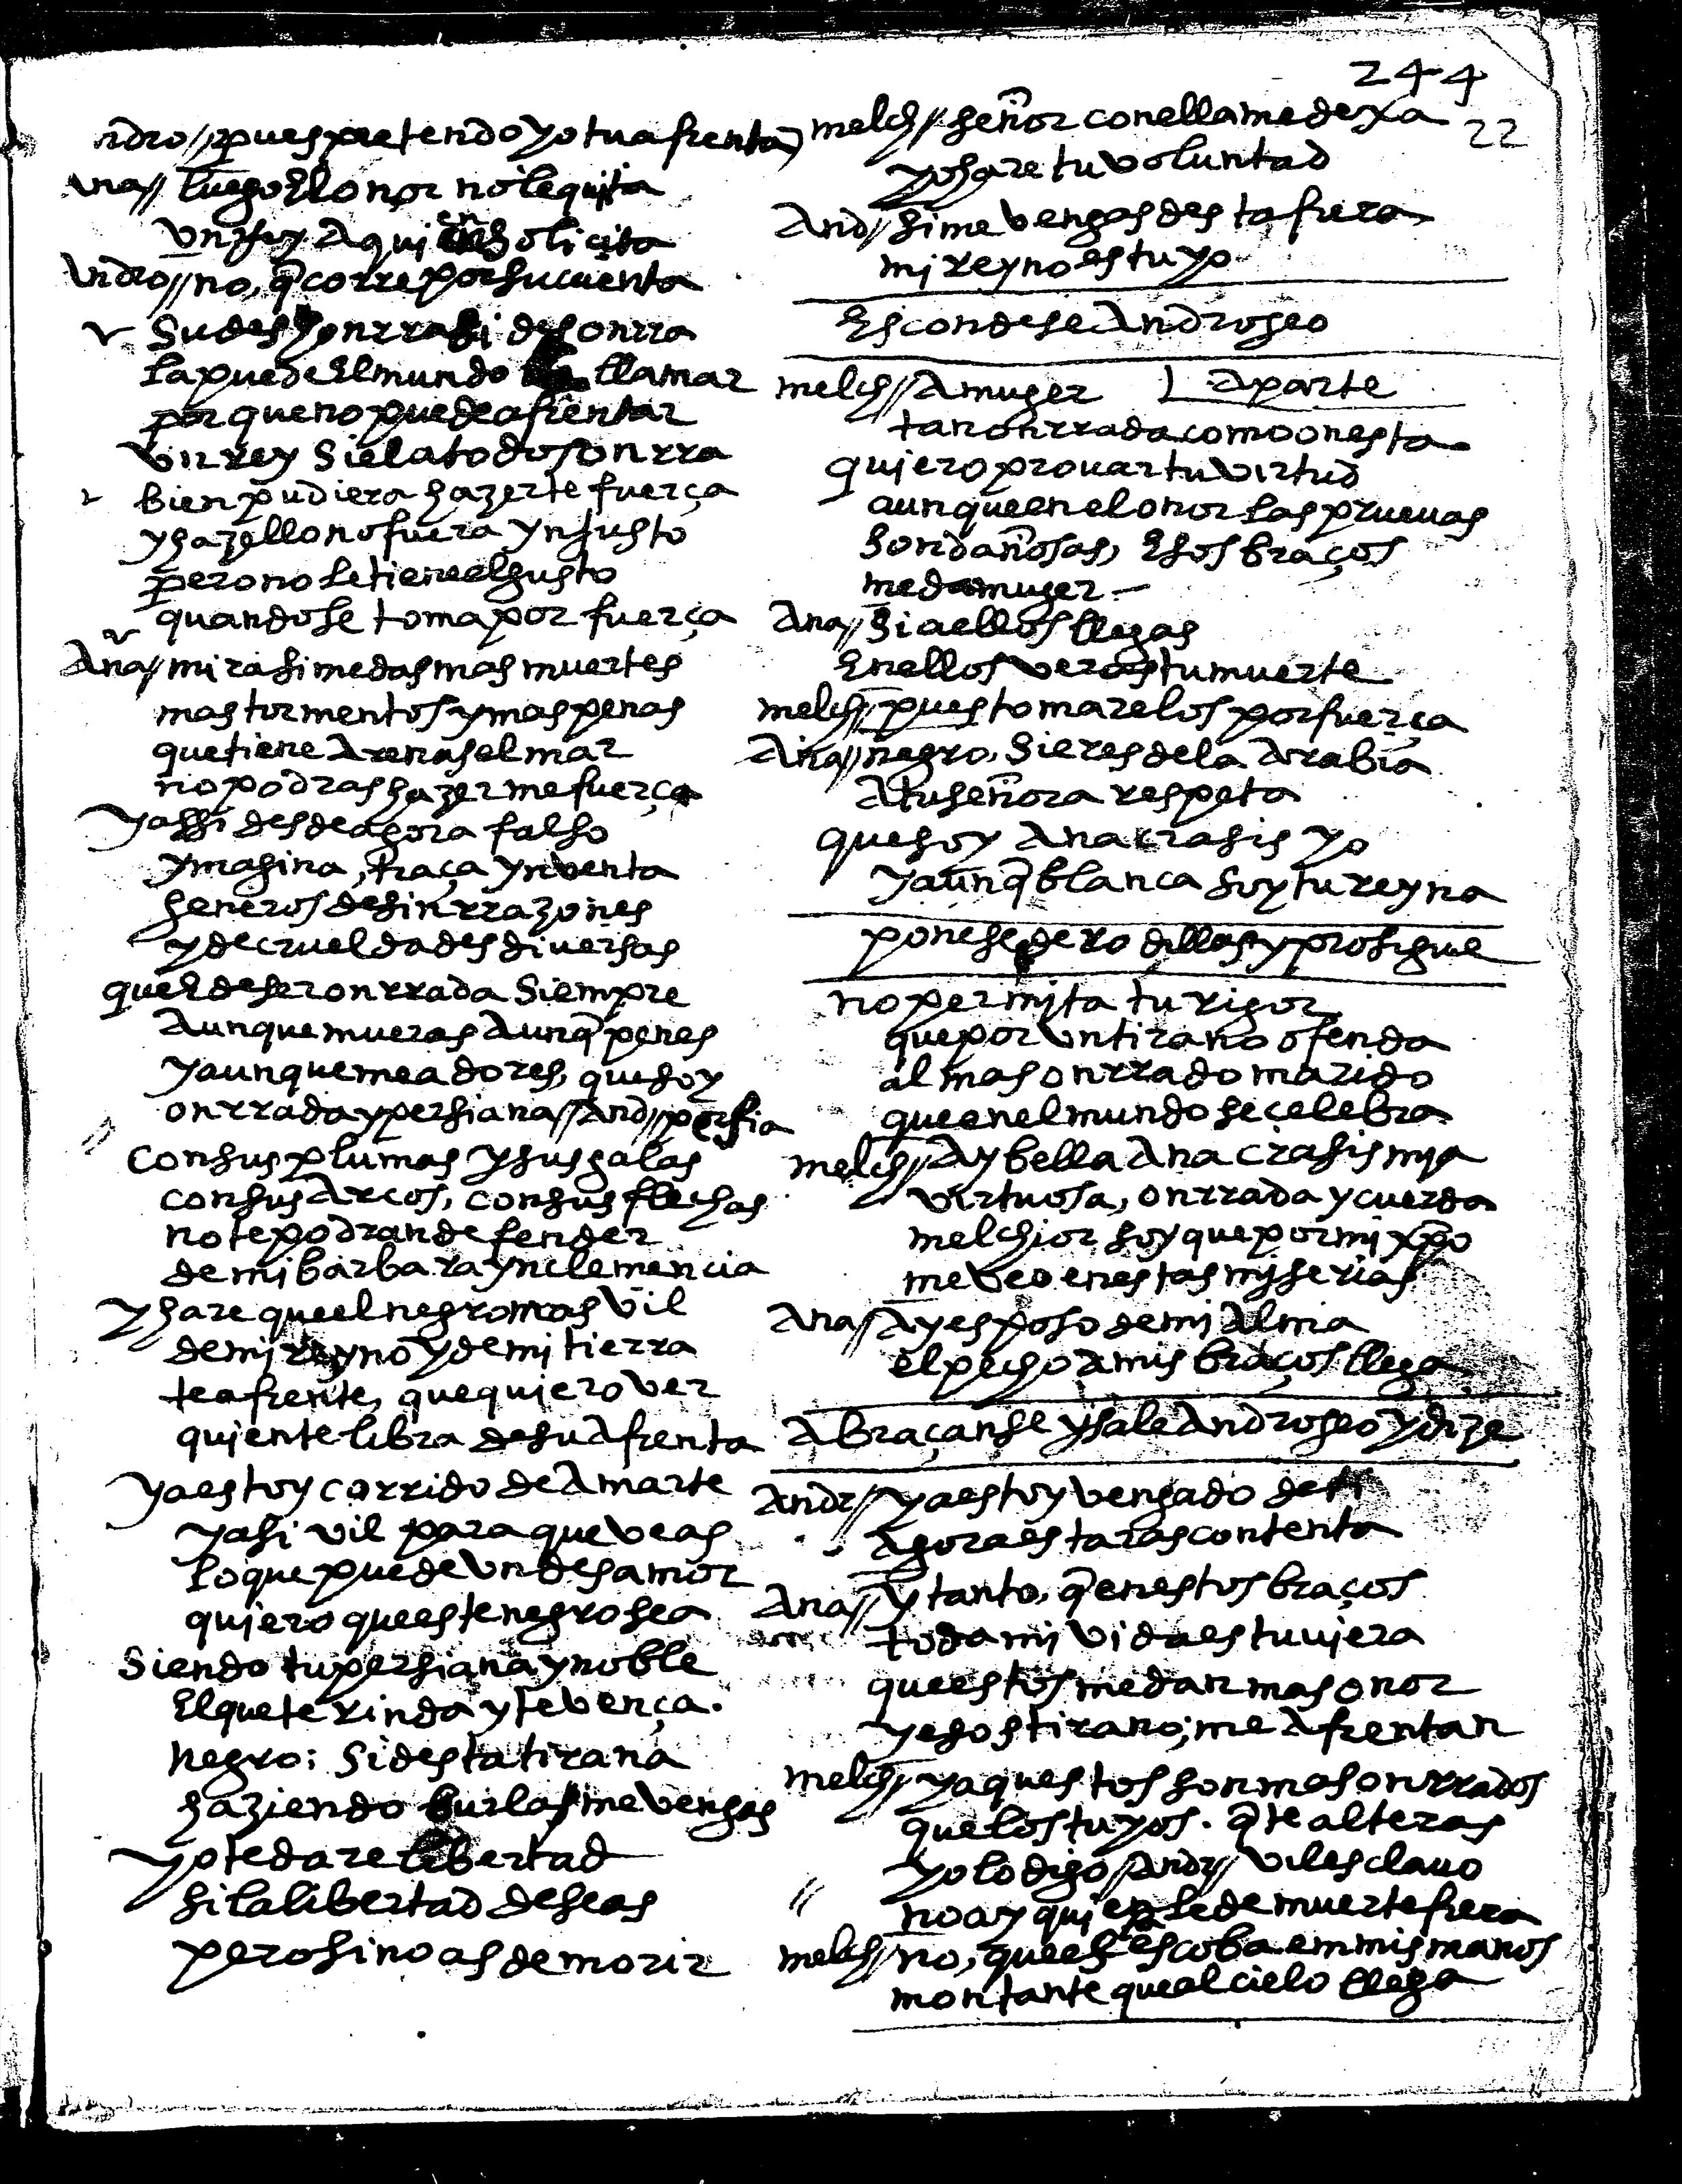 244
22
ndro // pues pretendo yo tu afrenta
Ana // luego El onor no le quita
Un Rey A quien solicita
Andro // no, q̃ corre por su cuenta
Su desonrra si desonrra
la puede El mundo llamar
por que no puede afrentar
Un rey si el a todos onrra
bien pudiera hazerte fuerça
y hazello no fuera ynjusto
pero no se tiene el gusto
quando se toma por fuerça
Ana // mira si me das mas muertes
mas tormentos y mas penas
que tiene Arenas el mar
no podras hazer me fuerça
y assi desde agora falso
ymagina, traça ynventa
generos de sinrrazones
y de crueldades diversas
que E de ser onrrada Siempre
Aunque mueras Aunq̃ penes
y aunque me adores, que soy
onrrada y persiana // And // porfia
Con sus plumas y sus galas
con sus Arcos, con sus flechas
no te podran defender
de mi barbara ynclemencia
y hare que el negro mas vil
de mi reyno y de mi tierra
te afrente, que quiero ver
quien te libra de su Afrenta
ya estoy corrido de Amarte
y asi vil para que veas
lo que puede un desamor
quiero que este negro sea
Siendo tu persiana y noble
El que te rinda y te vença.
negro: si desta tirana
haziendo burlas me vengas
yo te dare libertad
si la libertad deseas
pero si no as de morir
melch // señor con ella me dexa
yo hare tu voluntad
And // si me vengas desta fiera
mi reyno es tuyo
Escondese Androseo
melch // A muger | Aparte
tan onrrada como onesta
quiero provar tu virtud
aunque en el onor las pruevas
son dañosas, Esos braços
me da muger
Ana // Si a ellos llegas
En ellos veras tu muerte
melch // pues tomarelos por fuerça
Ana // negro, Si eres de la Arabia
A tu señora respeta
que soy Anacrasis yo
y aunq̃ blanca soy tu reyna
ponese de rodillas y prosigue
no permita tu rigor
que por un tirano ofenda
al mas onrrado marido
que en el mundo se celebra
melch // Ay bella Ana crasis mya
virtuosa, onrrada y cuerda
melchior soy que por mi xpo
me veo en estas miserias
Ana // Ay esposo de mi Alma
el pecho a mis braços llega
Abraçanse y sale Androseo y dize
Andr // ya estoy vengado de ti
Agora estaras contenta
Ana // y tanto, q̃ en estos braços
toda mi vida estuviera
que estos me dan mas onor
y esos tirano; me Afrentan
melch // ya questos son mas onrrados
que los tuyos. q̃ te alteras
yo lo digo // Andr // vil esclavo
no ay quien le de muerte fiera
melch // no, que es escoba en mis manos
montante que al cielo llega